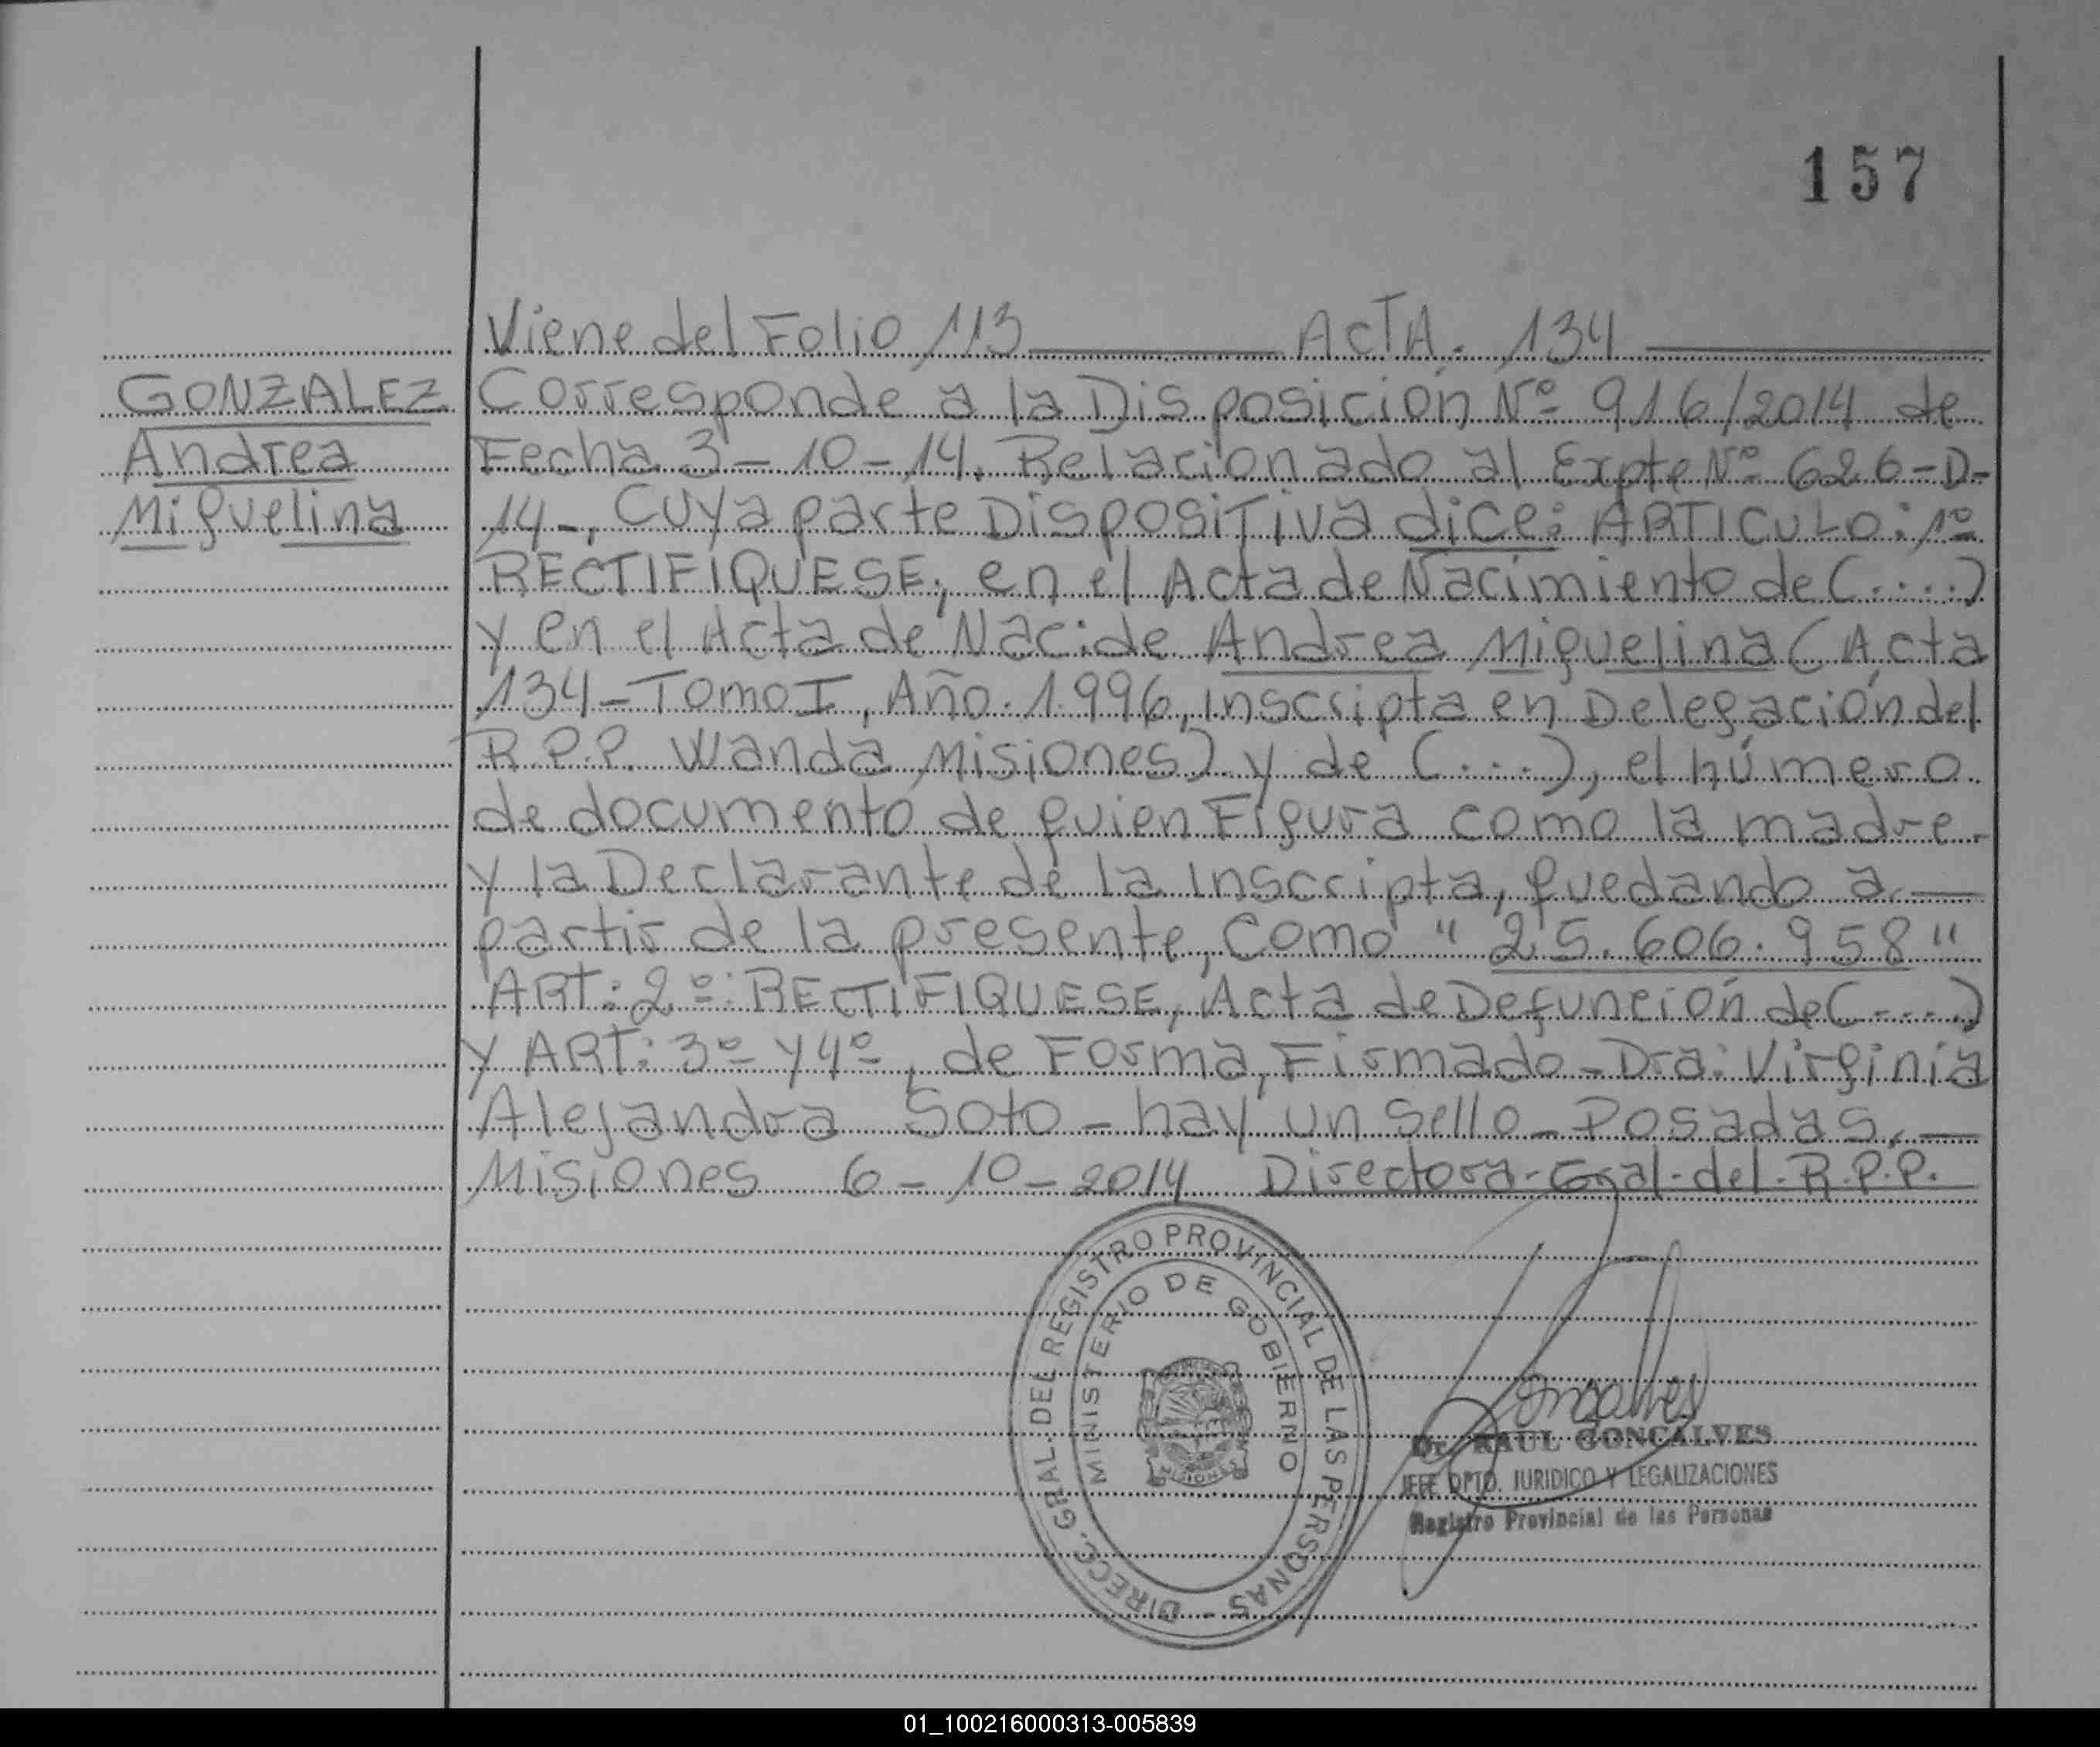 157
Viene del Folio 113 ACTA. 134
GONZALEZ
Andrea
Miguelina
Corresponde a la Disposición Nº 916/2014 de
Fecha 3-10-14. Relacionado al Expte Nº 626-D-
14-, Cuya parte Dispositiva dice: ARTICULO: 1º
RECTIFIQUESE, en el Acta de Nacimiento de (.....)
y en el Acta de Naci: de Andrea Miguelina (Acta
134-Tomo I, Año. 1.996, Inscripta en Delegación del
R.P.P. Wanda, Misiones) y de (.....), el número
de documento de quien Figura como la madre-
y la Declarante de la Insccipta, quedando a.-
partir de la presente, Como "25.606.958"
ART: 2º: RECTIFIQUESE, Acta de Defunción de (.....)
y ART: 3º y 4º, de Forma, Firmado-Dra: Virginia
Alejandra Soto-hay un Sello-Posadas,-
Misiones 6-10-2014 Directora-Gral-del-R.P.P.
DIREC. GRAL. DEL REGISTRO PROVINCIAL DE LAS PERSONAS -
MINISTERIO DE GOBIERNO
MISIONES
Goncalves
Dr. RAUL GONCALVES
JEFE DPTO. JURIDICO Y LEGALIZACIONES
Registro Provincial de las Personas
01_100216000313-005839